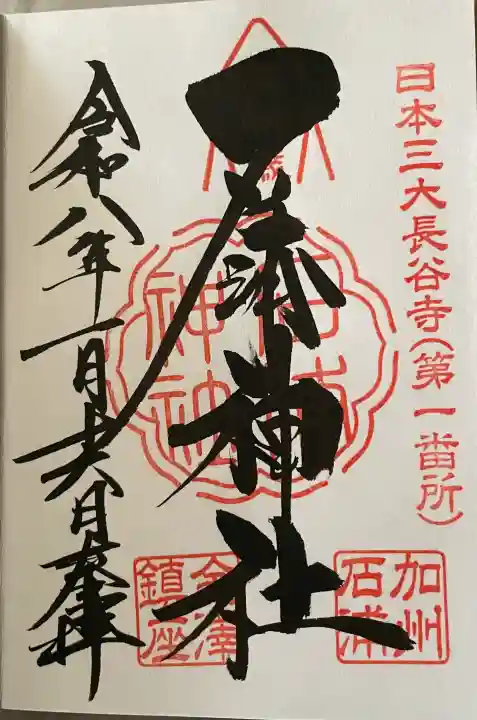 日本三大長谷寺(第一番所)
加州
石浦
石浦神社
石浦
神社
金澤
鎮座
令和八年一月十六日奉拝